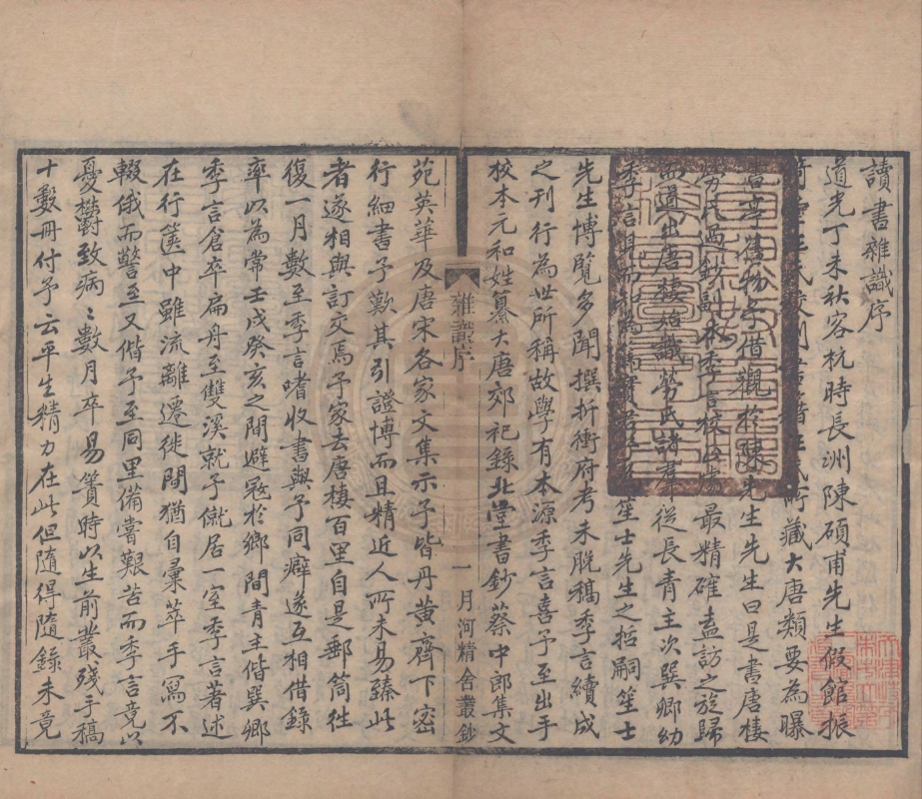 讀書雜識序
道光丁未秋客杭時長洲陳碩甫先生假館振
藏大唐類要為曝
書亭舊物予借觀於陳先生先生曰是書唐棲
勞氏過鈔副本季言校最精確盍訪之旋歸
而道出唐棲始識勞氏諸羣從長青主次巽卿幼
季言笙士先生之哲嗣笙士
先生博覽多聞撰折衝府考未脫稿季言續成
之刊行為世所稱故學有本源季言喜予至出手
校本元和姓纂大唐郊祀錄北堂書鈔蔡中郎集文
雜識序
一
月河精舍叢鈔
苑英華及唐宋各家文集示予皆丹黃齊下密
行細書予歎其引證博而且精近人所未易臻此
者遂相與訂交焉予家去唐棲百里自是郵筒往
復一月數至季言嗜收書與予同癖遂互相借錄
率以為常壬戌癸亥之間避寇於鄉間青主偕巽卿
季言倉卒扁舟至雙溪就予僦居一室季言著述
在行篋中雖流離遷徙間猶自彙萃手寫不
輟俄而警至又偕予至同里備嘗艱苦而季言竟以
憂鬱致病〻數月卒易簀時以生前叢殘手稿
十數冊付予云平生精力在此但隨得隨錄未竟